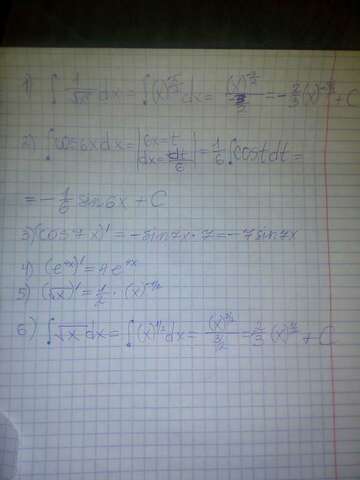 1) ∫ 1/√x dx = ∫(x)^(-1/2) dx = (x)^(-3/2) / (-3/2) = -2/3 (x)^(-3/2) + C
2) ∫ cos6x dx = |6x=t dx=dt/6| = 1/6 ∫ cost dt =
= -1/6 sin6x + C
3) (cos7x)' = -sin7x · 7 = -7sin7x
4) (e^(4x))' = 4e^(4x)
5) (√x)' = 1/2 · (x)^(-1/2)
6) ∫ √x dx = ∫(x)^(1/2) dx = (x)^(3/2) / (3/2) = 2/3 (x)^(3/2) + C